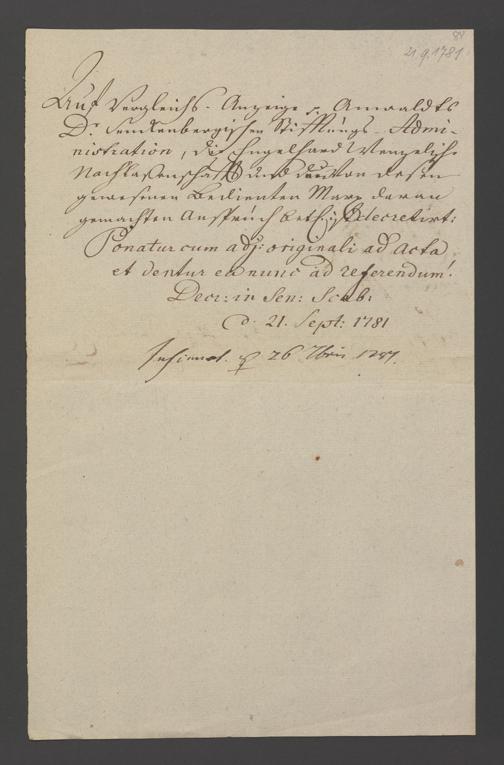 84
21.9.1781
Auf Vergleichs-Anzeige p. Anwaldts
Dr. Senckenbergischen Stifftungs-Admi-
nistration, die Engelhard Wenzelische
Nachlassenschafft und den von dessen
gewesenen Bedienten Marx daran
gemachten Anspruch betr: decretirt:
Ponatur cum adj: originali ad Acta
et dentur ea nunc ad referendum.
Decr: in Sen: Scab:
d. 21. Sept: 1781
Insinuat. 26 7bris